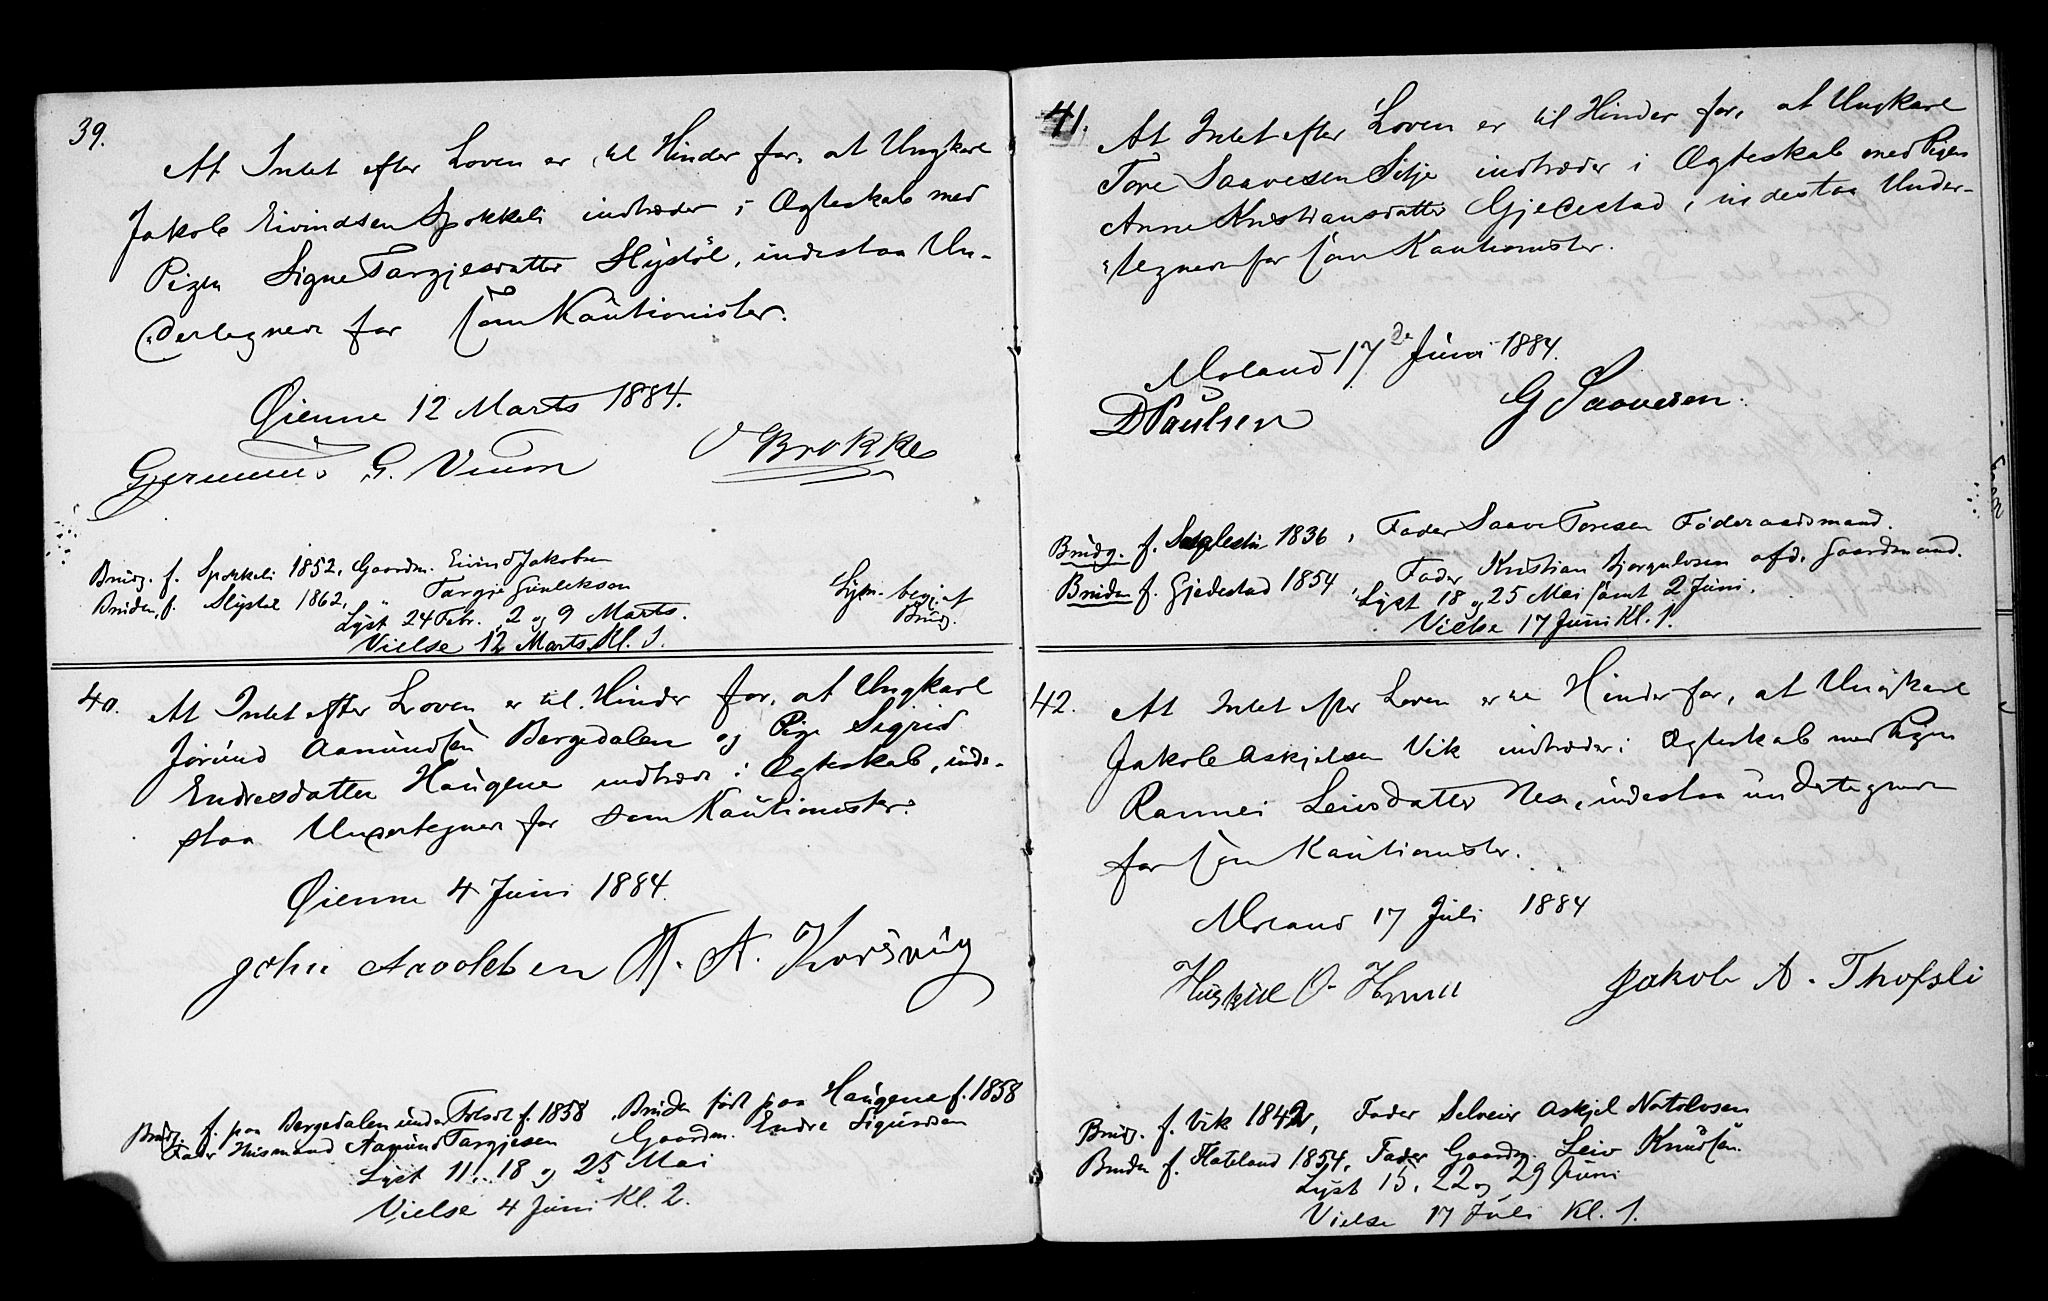 39.
At Intet efter Loven er til Hinder for, at Ungkarl
Jakob Eivindsen Spokkeli indtræder i Ægteskab med
Pigen Signe Targjesdatter Slystöl, indestaa Un-
dertegnede for som Kautionister.
Øienne 12 Marts 1884.
G. Brokke
Brudg. f. Spokkeli 1852, Gaardm. Eivind Jakobsen
Bruden f. Slystöl 1862, " Targje Gunleksen
Lyst 24 Febr. 2 og 9 Marts.
Vielse 12 Marts Kl. 1.
Lysn. beg. af
Brudg.
40.
At Intet efter Loven er til Hinder for, at Ungkarl
Jörund Aamundsen Bergedalen og Pige Sigrid
Endresdatter Haugene indtræder i Ægteskab, inde-
staa Undertegnede for som Kautionister.
Øienne 4 Juni 1884.
A. Korsvig
Brudg. f. paa Bergedalen under 1858 Bruden født paa Haugene f. 1858
Fader Husmand Aamund Targjesen Gaardm. Endre Sigurdsen
Lyst 11, 18 og 25 Mai
Vielse 4 Juni Kl. 2.
41.
At Intet efter Loven er til Hinder for, at Ungkarl
Tore Saavesen Silje indtræder i Ægteskab med Pigen
Anne Kristiansdatter Gjedestad, indestaa Under-
tegnede for som Kautionister.
Moland 17de Juni 1884.
D Paulsen G Saavesen.
Brudg. f. 1836, Fader Saave Toresen Föderaadsmand.
Bruden f. Gjedestad 1854, Fader Kristian Bjorgulvsen afd. Gaardmand.
Lyst 18 og 25 Mai samt 2 Juni.
Vielse 17 Juni Kl. 1.
42.
At Intet efter Loven er til Hinder for, at Ungkarl
Jakob Askjelsen Vik indtræder i Ægteskab med Pigen
Rannei Leivsdatter Nes, indestaa undertegnede
for som Kautionister.
Moland 17 Juli 1884
Jakob A. Thofsli
Brudg. f. Vik 1842, Fader Selveier Askjel Notolvsen
Bruden f. Flateland 1854, Fader Gaardm. Leiv Knudsen.
Lyst 15, 22 og 29 Juni
Vielse 17 Juli Kl. 1.